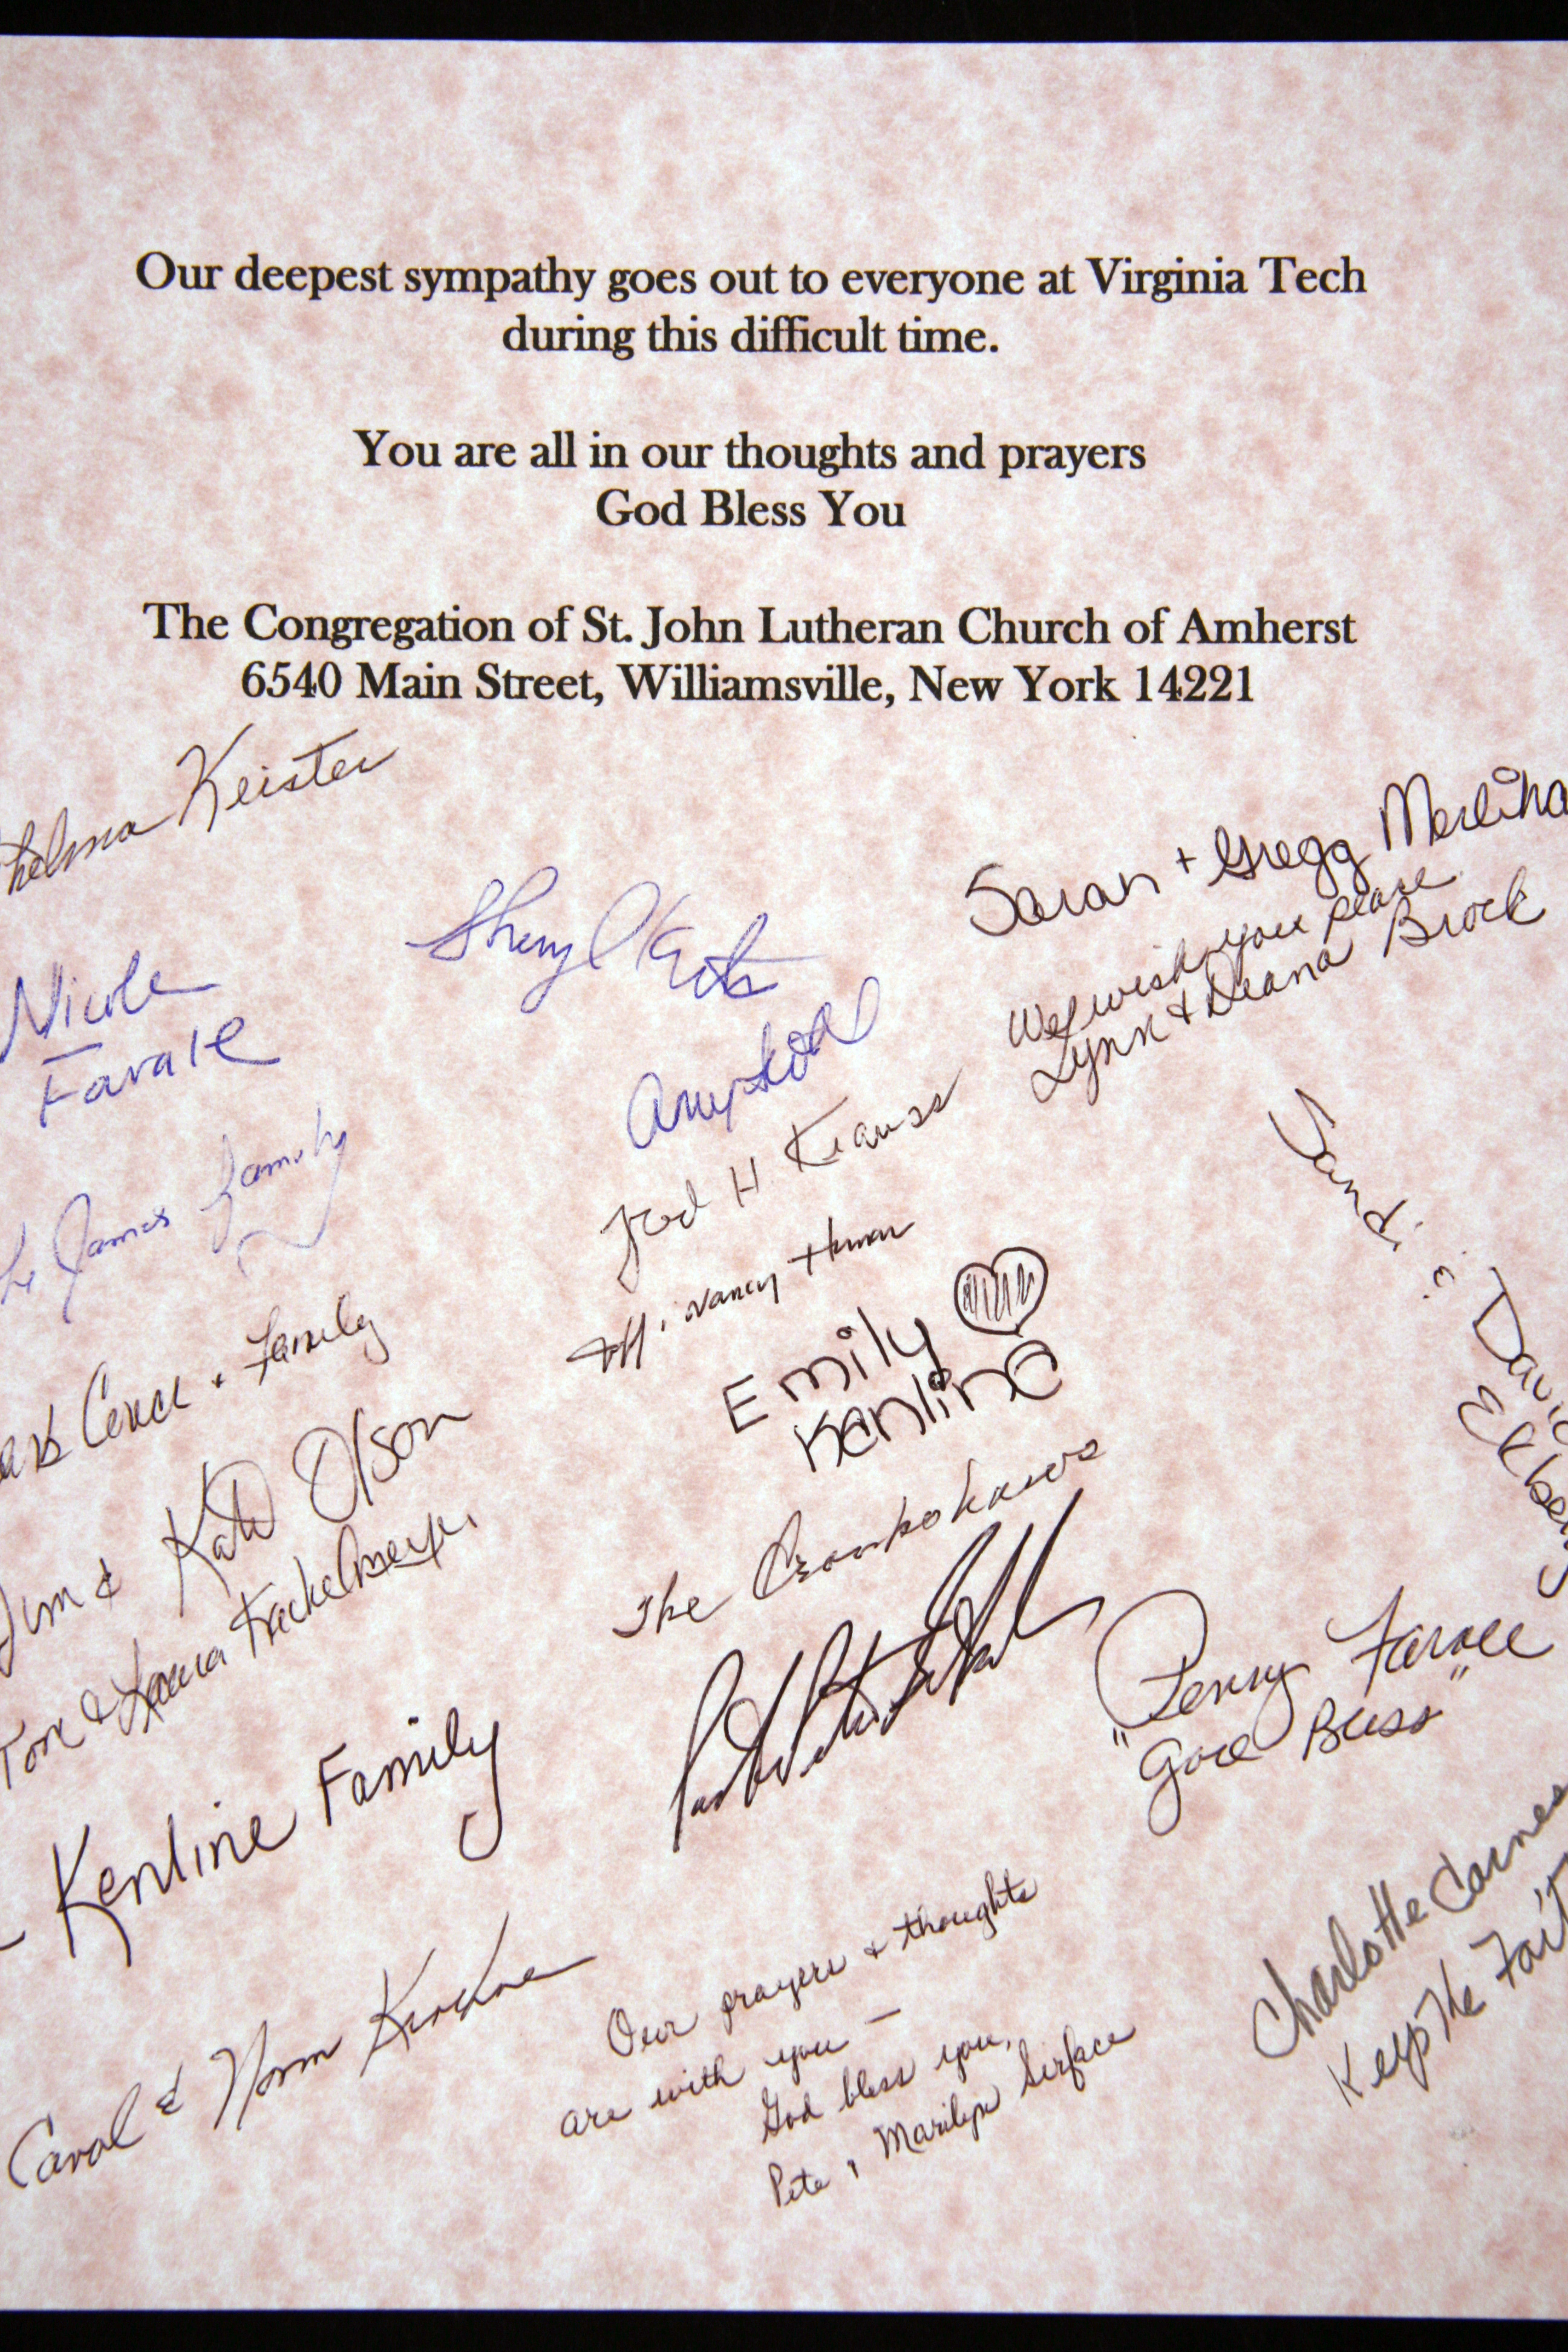 Our deepest sympathy goes out to everyone at Virginia Tech
during this difficult time.
You are all in our thoughts and prayers
God Bless You
The Congregation of St. John Lutheran Church of Amherst
6540 Main Street, Williamsville, New York 14221
Thelma Keister
Sheryl
Sarah + Gregg Merlina
We wish you peace
Lynn & Deana Brock
Nicole
Favale
Amy
Fred H Krauss
The James Family
Nancy
Sandi & David
Emily
Kenline
& Family
Jim & Kate Olson
The
Tom &
Penny
"God Bless"
Kenline Family
Charlotte Carnes
Keep The Fait
Carol & Norm
Our prayers & thoughts
are with you —
God bless you,
Pete & Marilyn Serface